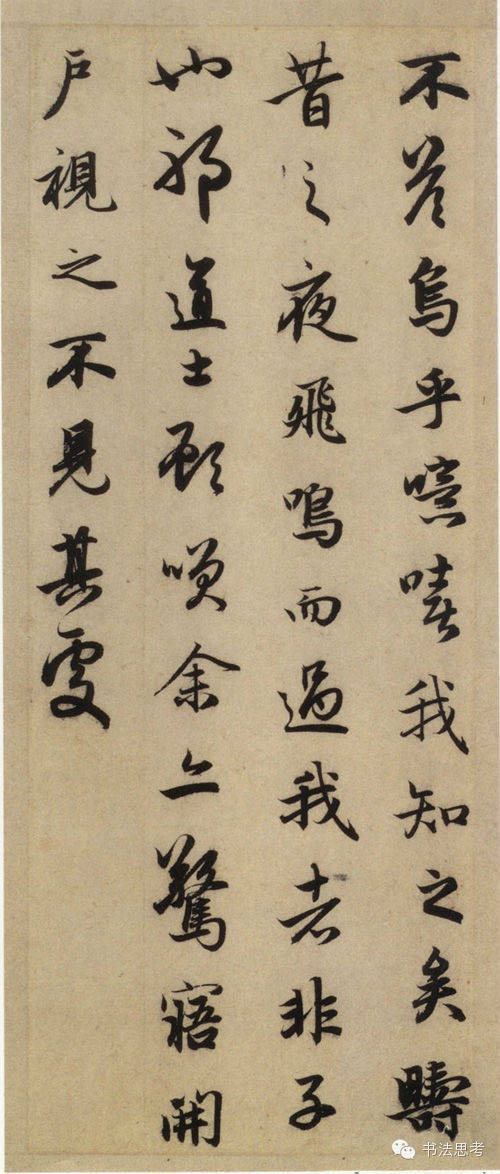 不答烏乎噫嘻我知之矣疇
昔之夜飛鳴而過我者非子
也邪道士顧咲余亦驚寤開
户視之不見其處
书法思考